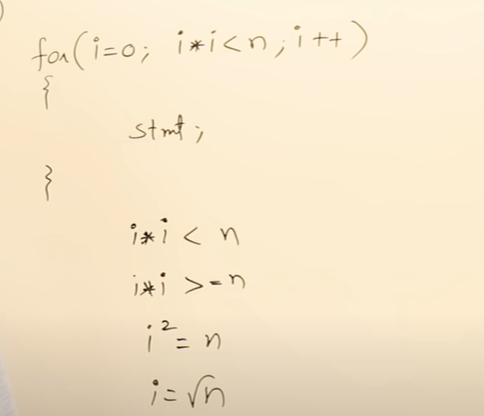 for(i=0; i*i<n; i++)
{
stmt;
}
i*i < n
i*i >= n
i² = n
i = √n